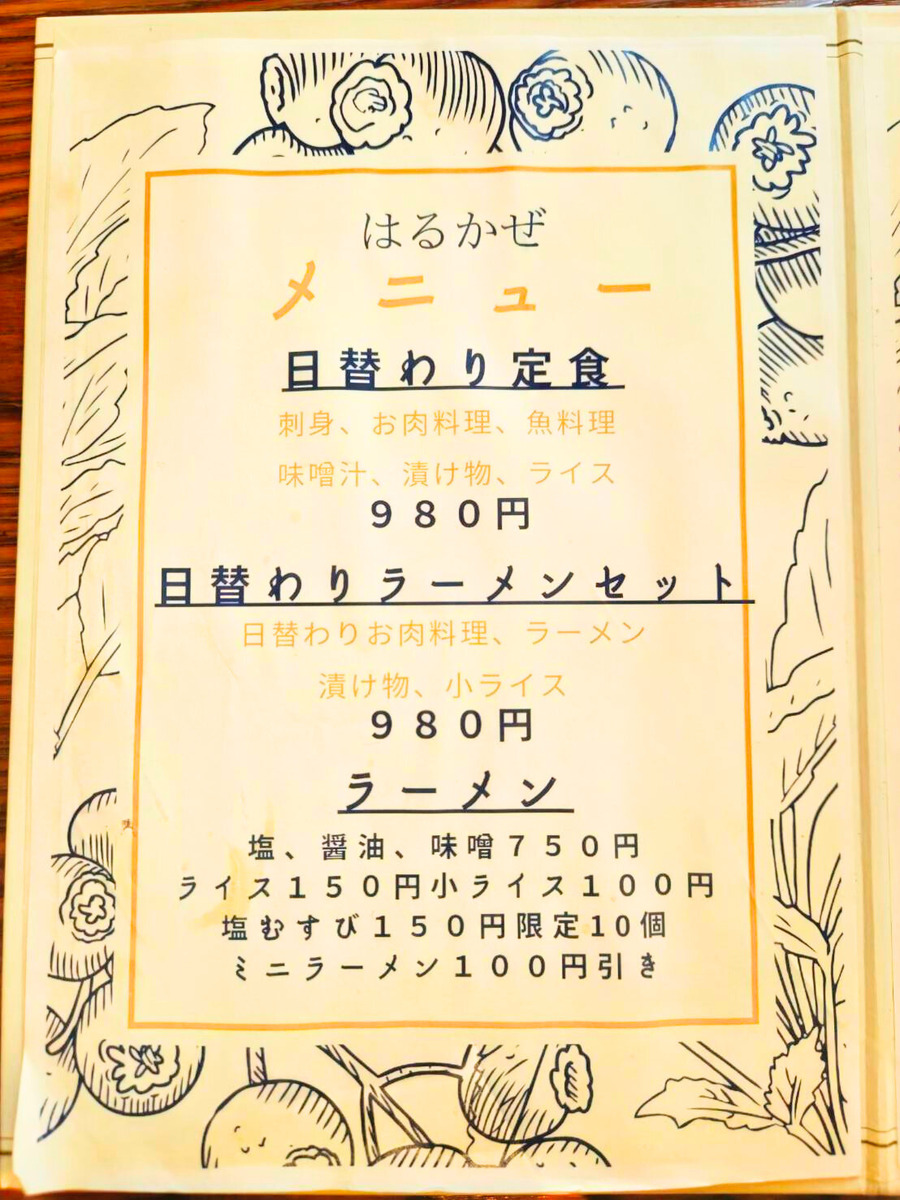 はるかぜ
メニュー
日替わり定食
刺身、お肉料理、魚料理
味噌汁、漬け物、ライス
９８０円
日替わりラーメンセット
日替わりお肉料理、ラーメン
漬け物、小ライス
９８０円
ラーメン
塩、醤油、味噌７５０円
ライス１５０円小ライス１００円
塩むすび１５０円限定10個
ミニラーメン１００円引き